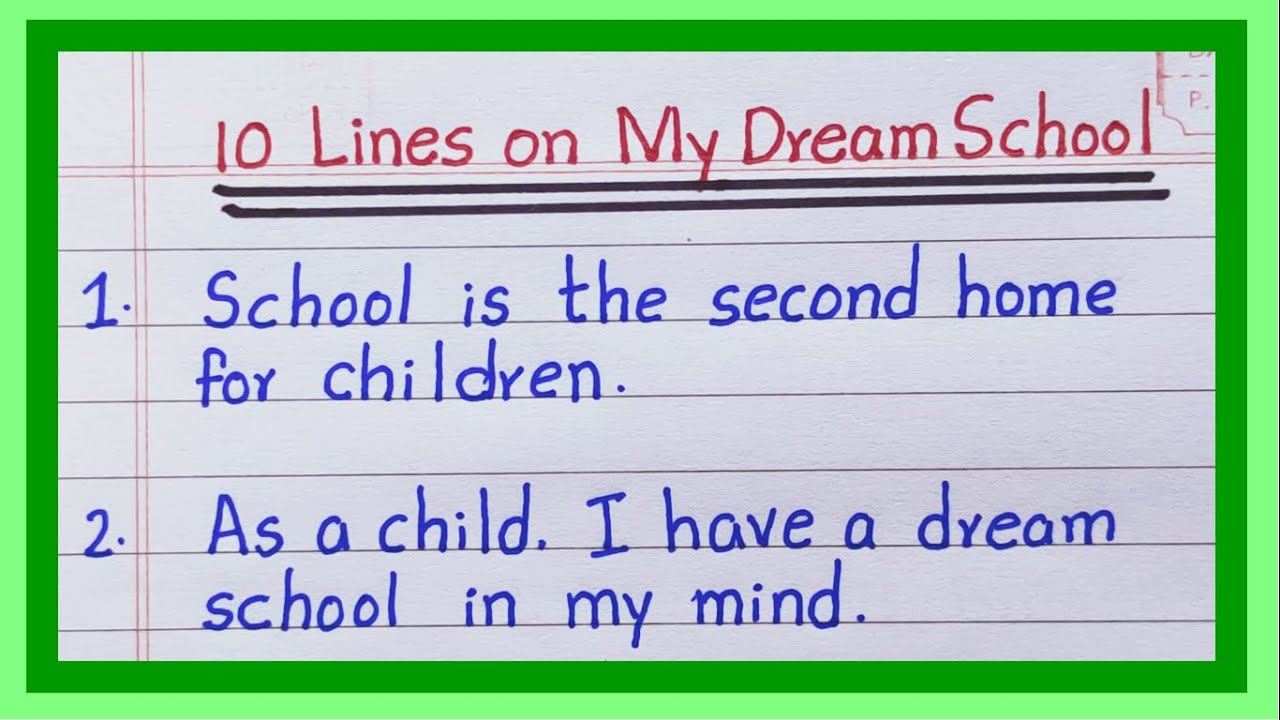 10 Lines on My Dream School
P.
1. School is the second home
for children.
2. As a child. I have a dream
school in my mind.